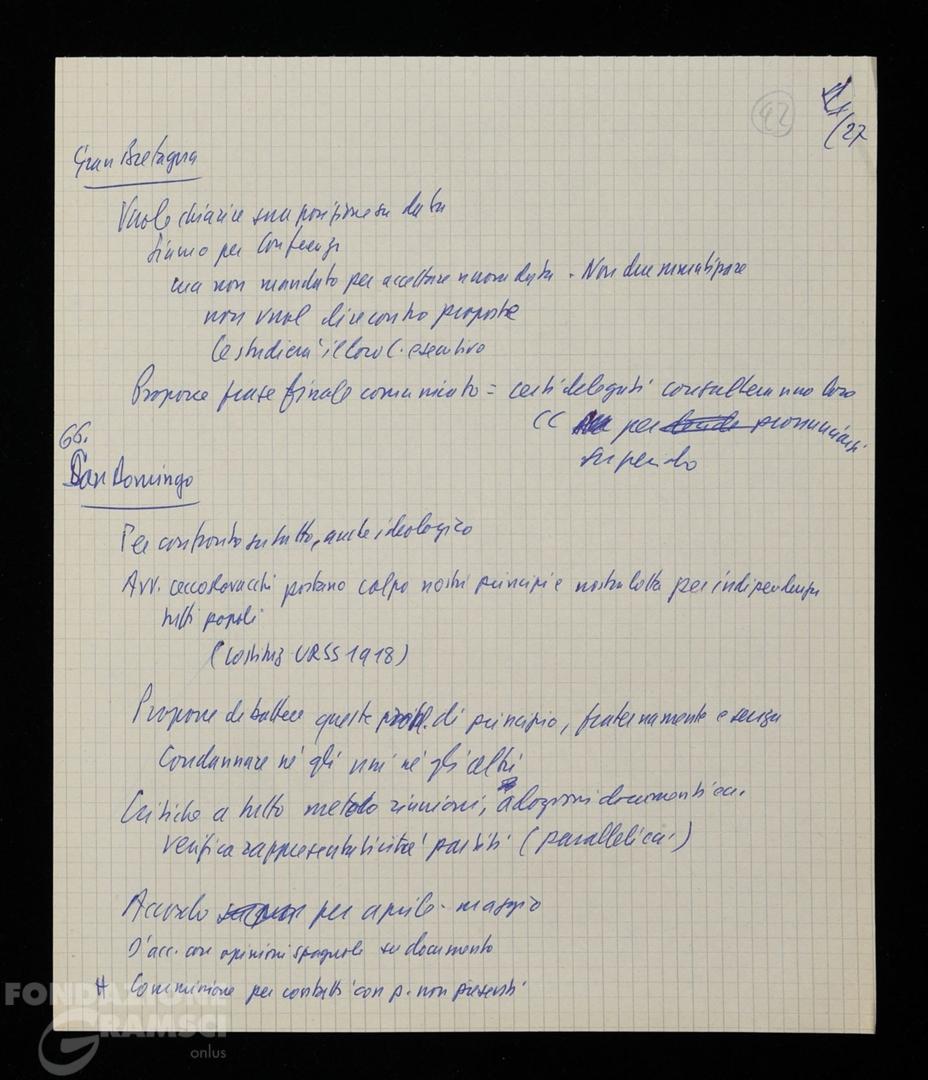 42
/27
Gran Bretagna
Vuole chiarire sua posizione su data
siamo per Conferenz
ma non mandato per accettare nuova data - Non due
non vuol dire contro proposte
le studierà il loro C. esecutivo
Propone frase finale comunicato = certi delegati consulteranno loro
CC per pronunciarsi
su periodo
66.
San Domingo
Per confronto su tutto, anche ideologico
Avv. cecoslovacchi portano colpo nostri principi e nostra lotta per indipendenza
tutti popoli
(Costituz URSS 1918)
Propone dibattere queste probl. di principio, fraternamente e senza
condannare né gli uni né gli altri
Critiche a tutto metodo riunioni, adozioni documenti ecc.
verifica rappresentatività partiti (parallelica.)
Accordo per aprile-maggio
D'acc. con opinioni spagnole su documento
H Commissione per contatti con p. non presenti
FONDAZIONE
GRAMSCI
onlus